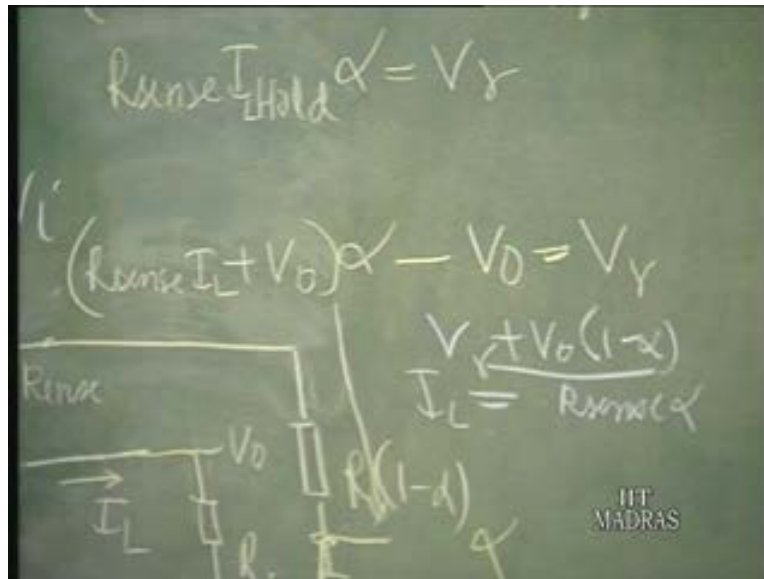 Rsense I_LHold α = Vγ
Vi
(Rsense I_L + V_0) α - V_0 = Vγ
Vγ + V_0 (1-α)
I_L = Rsense α
Rense
V_0
R (1-α)
I_L
R
α
IIT
MADRAS